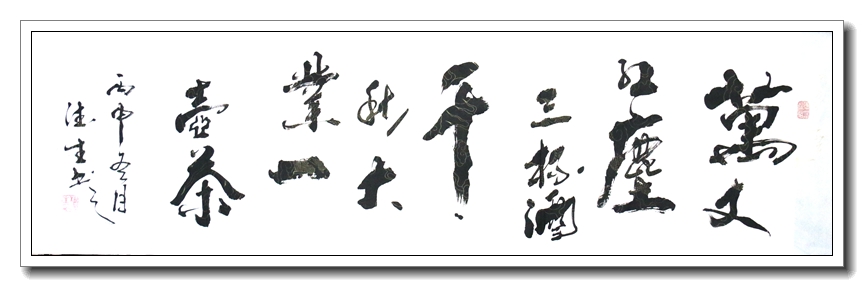 萬丈
紅塵
三杯酒
千
秋大
業一
壺茶
丙申冬月
德生书之